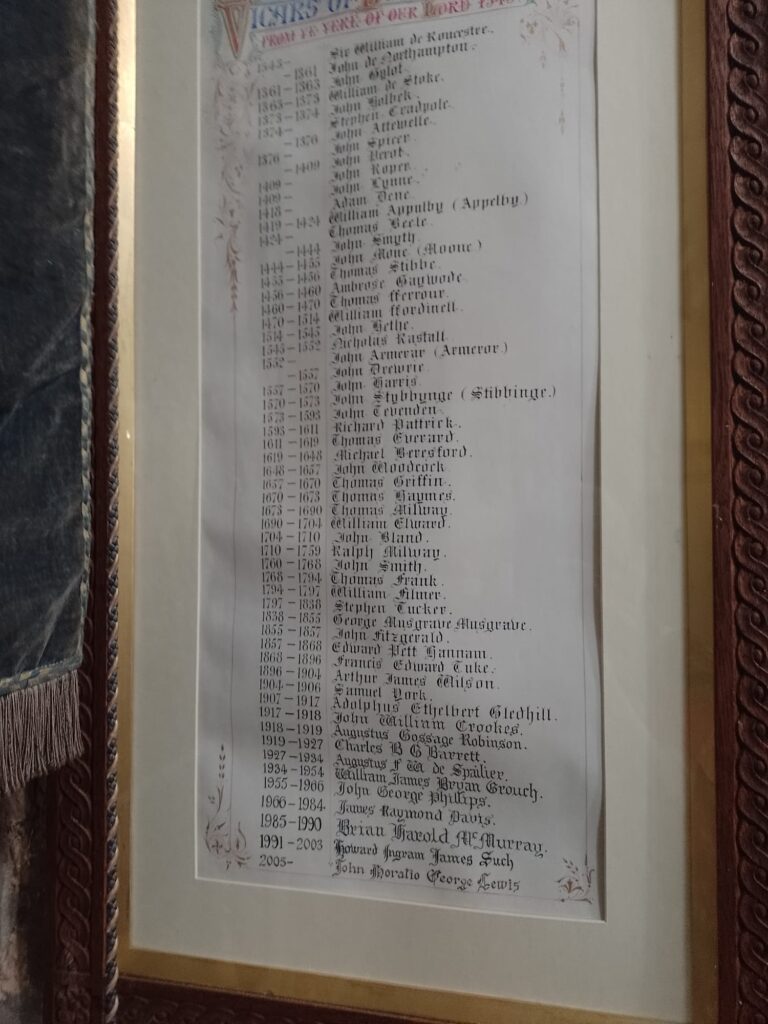 VICARS OF
FROM YE YERE OF OUR LORD 1343
1343- Sir William de Roucestre.
-1361 John de Northampton.
1361-1363 John Gylot.
1363-1373 William de Stoke.
1373-1374 John Holbek.
1374- Stephen Cradpole.
-1376 John Attewelle.
1376- John Spicer.
-1409 John Perot.
1409- John Roper.
1409- John Lynne.
1418- Adam Dene.
1419-1424 William Appulby (Appelby.)
1424- Thomas Beele.
-1444 John Smyth.
1444-1455 John Mone (Moone.)
1455-1456 Thomas Stibbe.
1456-1460 Ambrose Gaywode.
1460-1470 Thomas fferrour.
1470-1514 William ffordinell.
1514-1545 John Hethe.
1545-1552 Nicholas Rastall.
1552- John Armerar (Armeror.)
-1557 John Drewrie.
1557-1570 John Harris.
1570-1573 John Stybbynge (Stibbinge.)
1573-1593 John Tevenden.
1593-1611 Richard Pattrick.
1611-1619 Thomas Everard.
1619-1648 Michael Beresford.
1648-1657 John Woodcock.
1657-1670 Thomas Griffin.
1670-1673 Thomas Haymes.
1673-1690 Thomas Milway.
1690-1704 William Elward.
1704-1710 John Bland.
1710-1759 Ralph Milway.
1760-1768 John Smith.
1768-1794 Thomas Frank.
1794-1797 William Filmer.
1797-1838 Stephen Tucker.
1838-1855 George Musgrave Musgrave.
1855-1857 John Fitzgerald.
1857-1868 Edward Pett Hannam.
1868-1896 Francis Edward Tuke.
1896-1904 Arthur James Wilson.
1904-1906 Samuel York.
1907-1917 Adolphus Ethelbert Gledhill.
1917-1918 John William Crookes.
1918-1919 Augustus Gossage Robinson.
1919-1927 Charles B G Barrett.
1927-1934 Augustus F W. de
1934-1954 William James Bryan Crouch.
1955-1966 John George Phillips.
1966-1984 James Raymond Davis.
1985-1990 Brian Harold McMurray.
1991-2003 Howard Ingram James Such
2005- John Horatio George Lewis